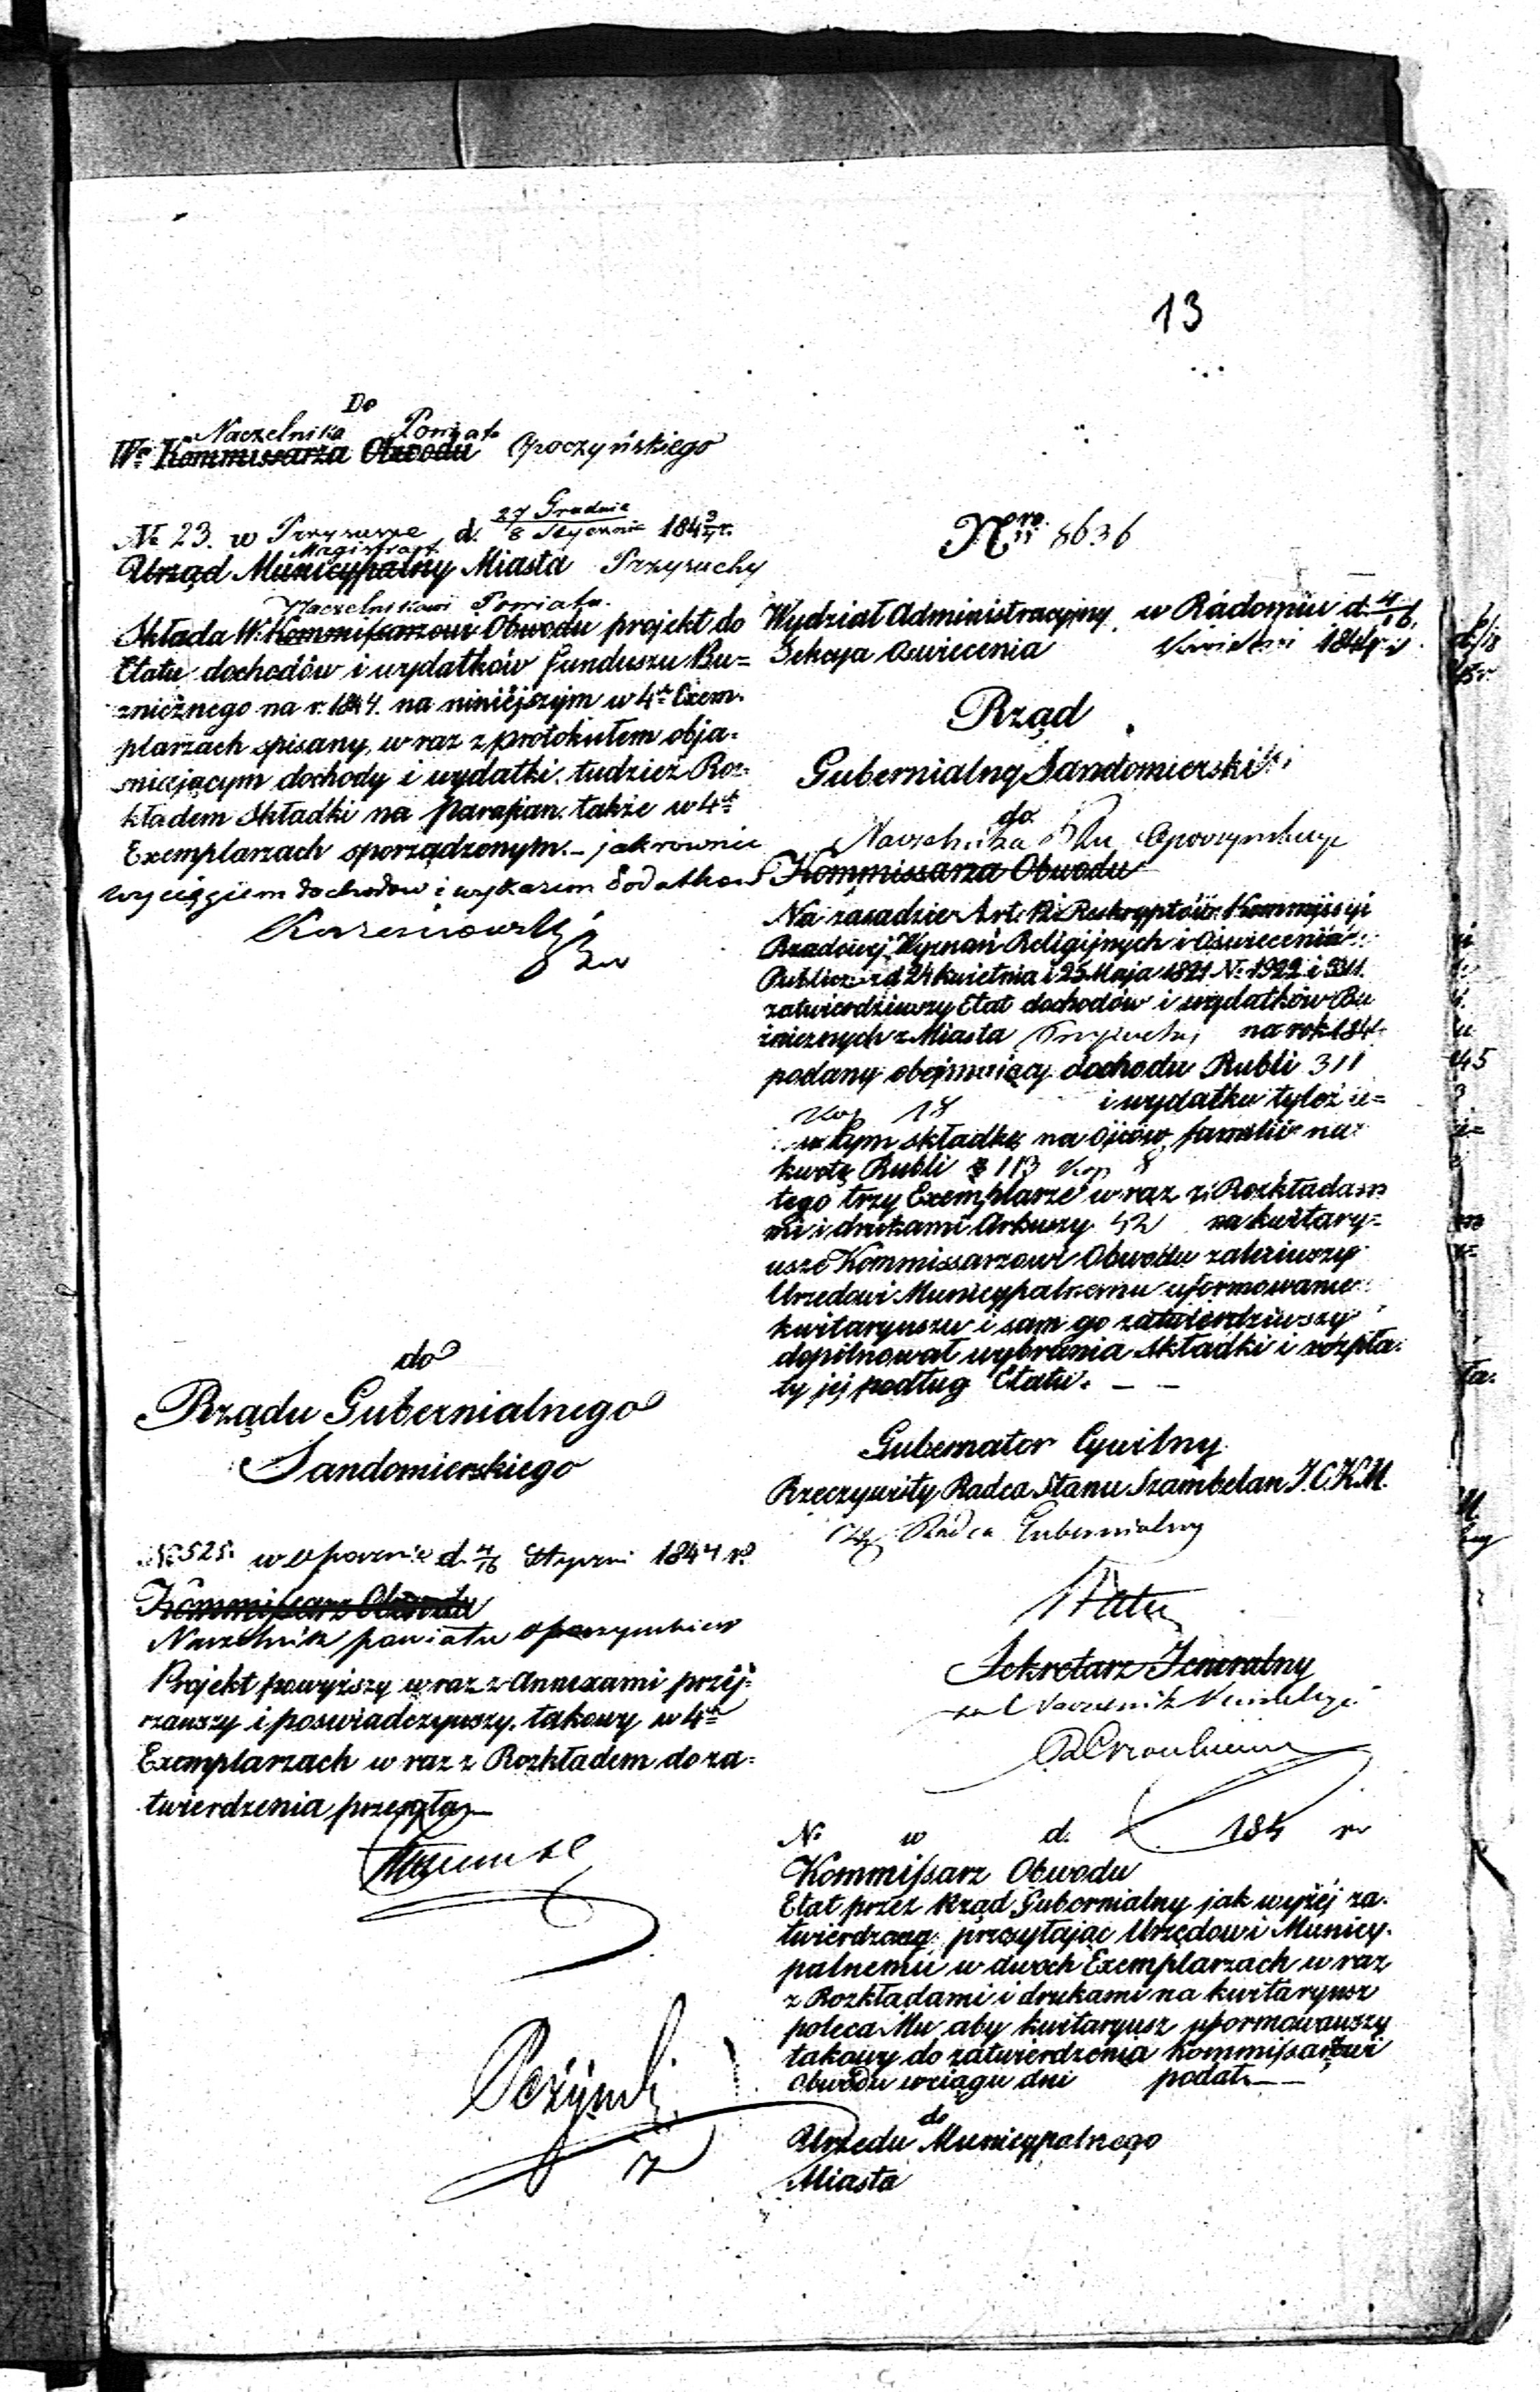 13
Do
Naczelnika Powiatu
Wo Kommissarza Obwodu Opoczyńskiego
No 23. w Przysusze d. 27 Grudnia / 8 Stycznia 1843/4 r.
Magistrat
Urząd Municypalny Miasta Przysuchy
Naczelnikowi Powiatu
Składa W. Kommissarzowi Obwodu projekt do
Etatu dochodów i wydatków funduszu Bu=
źnicznego na r. 1844. na niniéjszym w 4ch Exem-
plarzach spisany, wraz z protokułem obja-
śniającym dochody i wydatki, tudzież Roz-
kładem Składki na Parafian także w 4ch
Exemplarzach sporządzonym. – jak równie
wyciągiem dochodow i wykazem dodatkow
do
Rządu Gubernialnego
Sandomierskiego
No 525. w Opocznie d. 4/16 Styczni 1844 r.
Kommissarz Obwodu
Naczelnik powiatu Opoczynskiego
Projekt powyższy wraz z Annexami przéj-
rzawszy i poswiadczywszy, takowy w 4ch
Exemplarzach wraz z Rozkładem do za-
twierdzenia przesyła
Nro 8636
Wydział Administracyjny w Radomiu d. 4/16
Sekcya Oswiecenia Kwietni 1844 r.
Rząd
Gubernialny Sandomierski
do
Naczelnika Ptu Opoczynskiego
Kommissarza Obwodu
Na zasadzie Art. 12 Reskryptów Kommissyi
Rządowej Wyznań Religijnych i Oświecenia
Publicz: z d. 24 Kwietnia i 25 Maja 1821 No 1922 i 3311.
zatwierdziwszy Etat dochodów i wydatków Bu
źnicznych z Miasta Przysuchy na rok 184
podany obejmujący dochodu Rubli 311
kop 18 i wydatku tyloż i=
w tym składkę na Ojców familii na
kwotę Rubli 113 kop 8
tego trzy Exemplarze wraz z Rozkłada
mi i drukami Arkuszy na kwitary=
usze Kommissarzowi Obwodu
Urzędowi Municypalnemu uformowanie
kwitaryuszu i sam go zatwierdziwszy
dopilnował wybrania składki i rozpła-
ty jéj podług Etatu. — —
Gubernator Cywilny
Rzeczywisty Radca Stanu Szambelan J.C.K.M.
Radca Gubernialny
Sekretarz Jeneralny
Naczelnik Kancelaryi
No w d. 184 r
Kommissarz Obwodu
Etat przez Rząd Gubernialny jak wyżéj za-
twierdzony przesyłając Urzędowi Municy-
palnemu w dwoch Exemplarzach wraz
z Rozkładami i drukami na kwitaryusz
poleca Mu aby kwitaryusz uformowawszy
takowy do zatwierdzenia Kommissarzowi
Obwodu w ciągu dni podał. —
do
Urzędu Municypalnego
Miasta